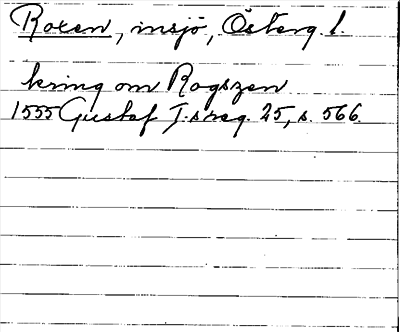 Roxen, insjö, Österg. l.
kring om Rogszen
1555 Gustaf I:s reg. 25, s. 566.